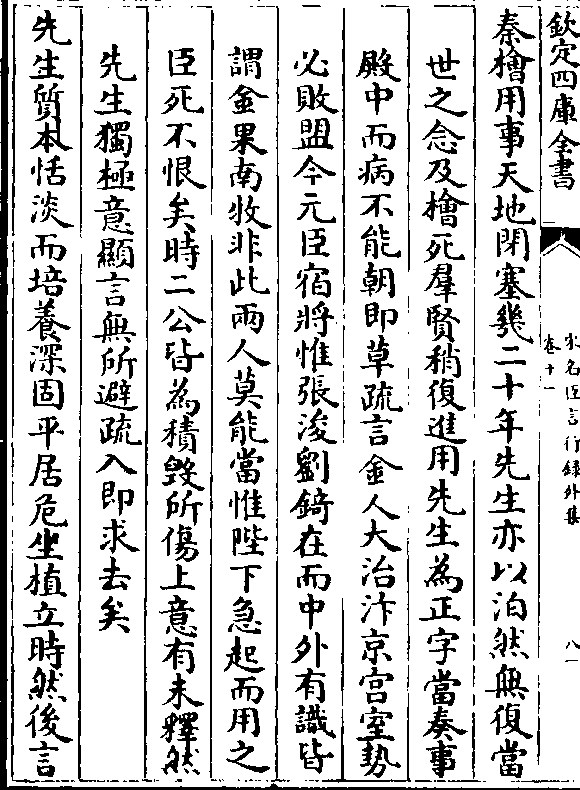 欽定四庫全書
宋名臣言行録外集
卷十一
八
秦檜用事天地閉塞幾二十年先生亦以泊然無復當
世之念及檜死羣賢稍復進用先生為正字當奏事
殿中而病不能朝即草疏言金人大治汴京宫室勢
必敗盟今元臣宿將惟張浚劉錡在而中外有識皆
謂金果南牧非此兩人莫能當惟陛下急起而用之
臣死不恨矣時二公皆為積毀所傷上意有未釋然
先生獨極意顯言無所避疏入即求去矣
先生質本恬淡而培養深固平居危坐植立時然後言